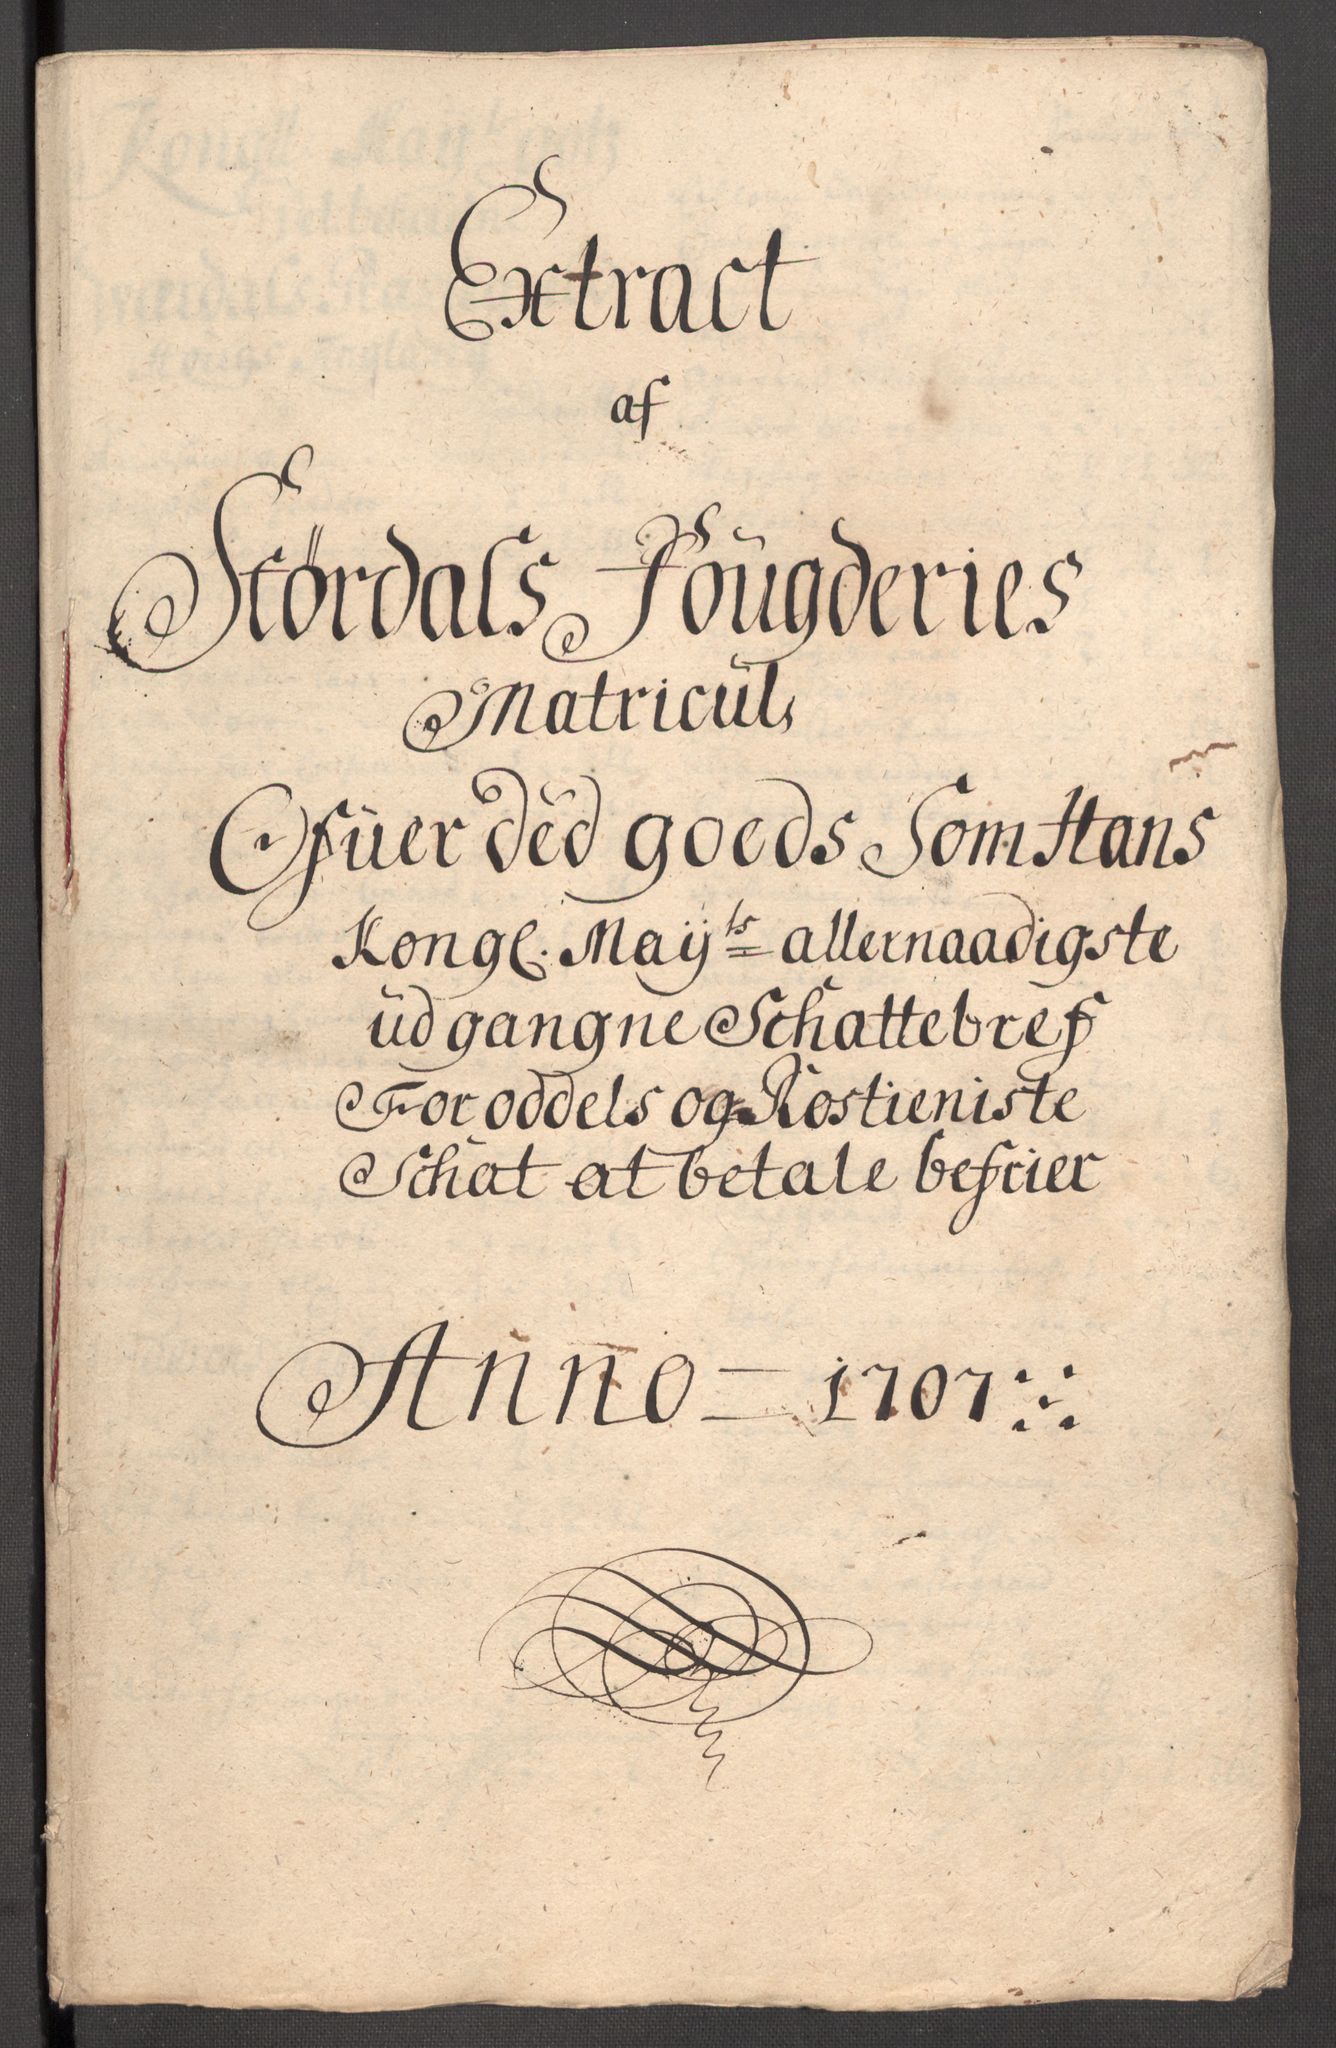 Extract
af
Stördals Foügderies
Matricül,
Ofüer dēd goeds Som Hans
Kongl. Maÿts allernaadigste
üdgangne Schattebref
For oddels og Rostieniste
Schat at betale befrier
Anno = 1707